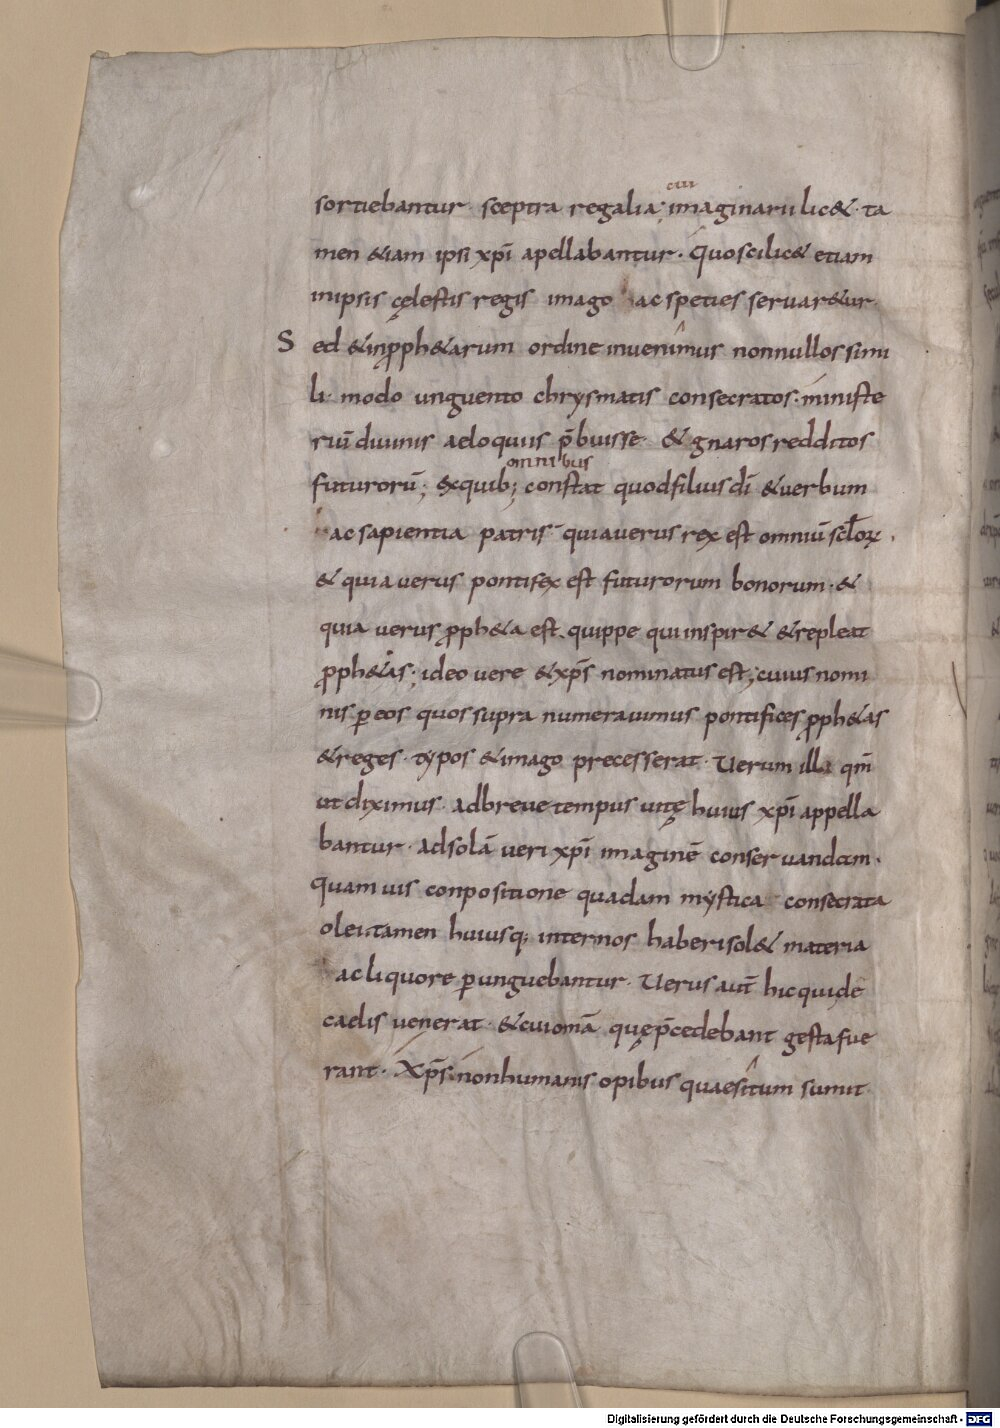 cui
sortiebantur. sceptra regalia; imaginaru lic& · ta
men &iam ipsi xp̄i apellabantur · Quos cilic& etiam
in ipsis cęlestis regis imago ac speties servar&ur
Sed & in ꝓph&arum ordine invenimus nonnullos simi
li · modo unguento chrysmatis consecratos · ministe
riū divinis aeloquiis p̄buisse & gnaros redditos
omnibus
futurorū; ex quib; constat quod filius dī & verbum
ac sapientia patris quia verus rex est omniū sc̄lorꝝ ·
& quia verus pontifex est futurorum bonorum · &
quia verus ꝓph&a est. quippe qui inspir& & repleat
ꝓph&as; ideo vere & xp̄s nominatus est; cuius nomi
nis ꝑ eos quos supra numeravimus pontifices ꝓph&as
& reges · typos & imago precesserat · Verum illi qm̄
ut diximus · ad breve tempus vitę huius xp̄i appella
bantur · ad solā veri xp̄i imaginē conservandam ·
quam vis conpositione quadam mystica consecrata
olei · tamen huiusq; internos haberi sol& materia
ac liquore ꝑunguebantur · Verus aut̄ hic qui de
caelis venerat · & cui om̄a quę p̄cedebant gesta fue
rant · Xp̄s · non humanis opibus quaesitum sumit